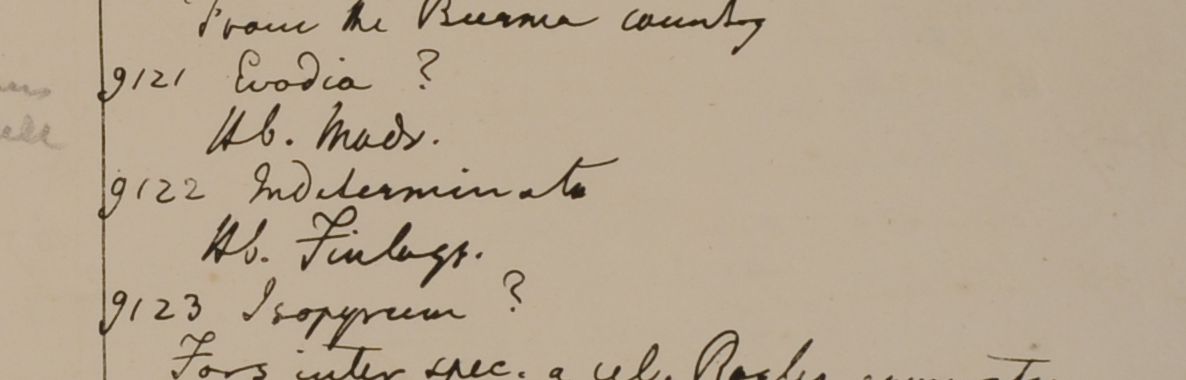 From the Burma country
9121 Evodia ?
Hb. Madr.
9122 Indeterminata
Hb. Finlays.
9123 Isopyrum ?
Fors inter spec. a cel. Royle